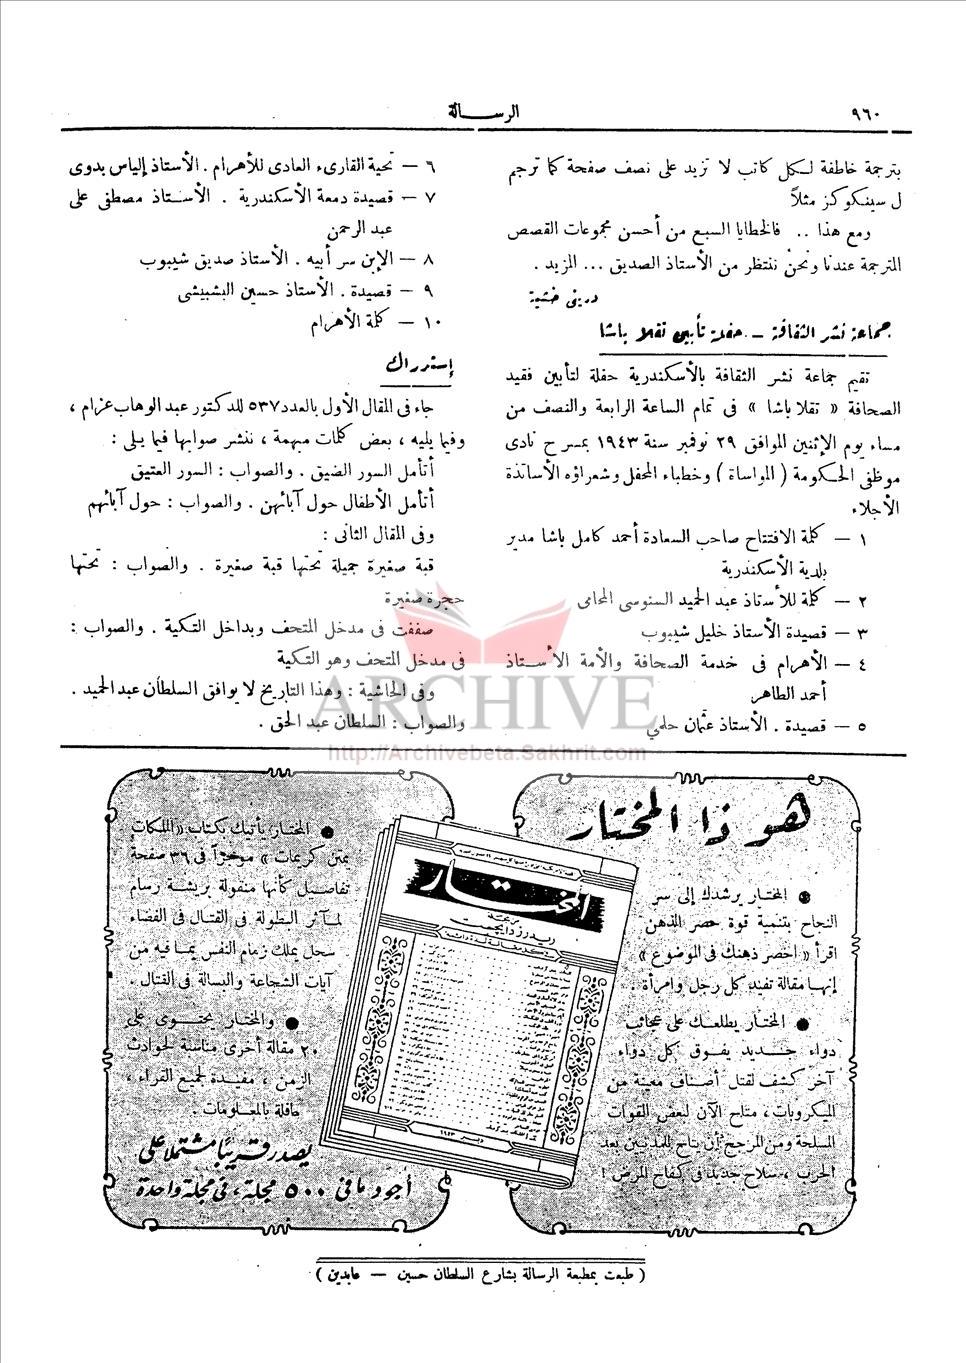 ٩٦٠
الرسـالة
بترجمة خاطفة لكل كاتب لا تزيد على نصف صفحة كما ترجم
ل سينكوكز مثلاً
ومع هذا .. فالخطايا السبع من أحسن مجموعات القصص
المترجمة عندنا ونحن ننتظر من الأستاذ الصديق ... المزيد .
دريني خشبة
جماعة نشر الثقافة – حفلة تأبين تقلا باشا
تقيم جماعة نشر الثقافة بالأسكندرية حفلة لتأبين فقيد
الصحافة « تقلا باشا » فى تمام الساعة الرابعة والنصف من
مساء يوم الإثنين الموافق ٢٩ نوفمبر سنة ١٩٤٣ بمسرح نادى
موظفى الحكومة ( المواساة ) وخطباء المحفل وشعراؤه الأساتذة
الأجلاء
١ – كلمة الافتتاح صاحب السعادة أحمد كامل باشا مدير
بلدية الأسكندرية
٢ – كلمة للأستاذ عبد الحميد السنوسى المحامى
٣ – قصيدة الأستاذ خليل شيبوب
٤ – الأهرام فى خدمة الصحافة والأمة الأستاذ
أحمد الطاهر
٥ – قصيدة . الأستاذ عثمان حلمي
٦ – تحية القارىء العادى للأهرام . الأستاذ إلياس بدوى
٧ – قصيدة دمعة الأسكندرية . الأستاذ مصطفى على
عبد الرحمن
٨ – الإبن سر أبيه . الأستاذ صديق شيبوب
٩ – قصيدة . الأستاذ حسين البشبيشى
١٠ – كلمة الأهرام
إستدراك
جاء فى المقال الأول بالعدد ٥٣٧ للدكتور عبد الوهاب عزام ،
وفيما يليه ، بعض كلمات مبهمة ، ننشر صوابها فيما يلى :
أتأمل السور الضيق . والصواب : السور العتيق
أتأمل الأطفال حول آبائهن . والصواب : حول آبائهم
وفى المقال الثانى :
قبة صغيرة جميلة تحتها قبة صغيرة . والصواب : تحتها
حجرة صغيرة
صففت فى مدخل المتحف وبداخل التكية . والصواب :
فى مدخل المتحف وهو التكية
وفى الحاشية : وهذا التاريخ لا يوافق السلطان عبد الحميد .
والصواب : السلطان عبد الحق .
ARCHIVE
http://Archivebeta.Sakhrit.com
هو ذا المختار
● المختار يرشدك إلى سر
النجاح بتنمية قوة حصر الذهن
اقرأ « احصر ذهنك فى الموضوع »
إنها مقالة تفيد كل رجل وامرأة .
● المختار يطلعك على عجائب
دواء جديد يفوق كل دواء
آخر كشف لقتل أصناف معينة من
الميكروبات ، متاح الآن لبعض القوات
المسلحة ومن المرجح أن يتاح للمدنيين بعد
الحرب ، سلاح جديد فى كفاح المرض !
المختار
ريدرز دايجست
ديسمبر ١٩٤٣
● المختار يأتيك بكتاب «
يمتن كريمات » موجزاً فى ٣٦ صفحة
تفاصيل كأنها منقولة بريشة رسام
لمآثر البطولة فى القتال فى الفضاء
سجل يملك زمام النفس بما فيه من
آيات الشجاعة والبسالة فى القتال .
● والمختار يحتوى على
٢٠ مقالة أخرى مناسبة لحوادث
الزمن ، مفيدة لجميع القراء ،
حافلة بالمعلومات .
يصدر قريبًا مشتملا على
أجود ما فى ٥٠٠ مجلة ، فى مجلة واحدة
( طبعت بمطبعة الرسالة بشارع السلطان حسين – عابدين )